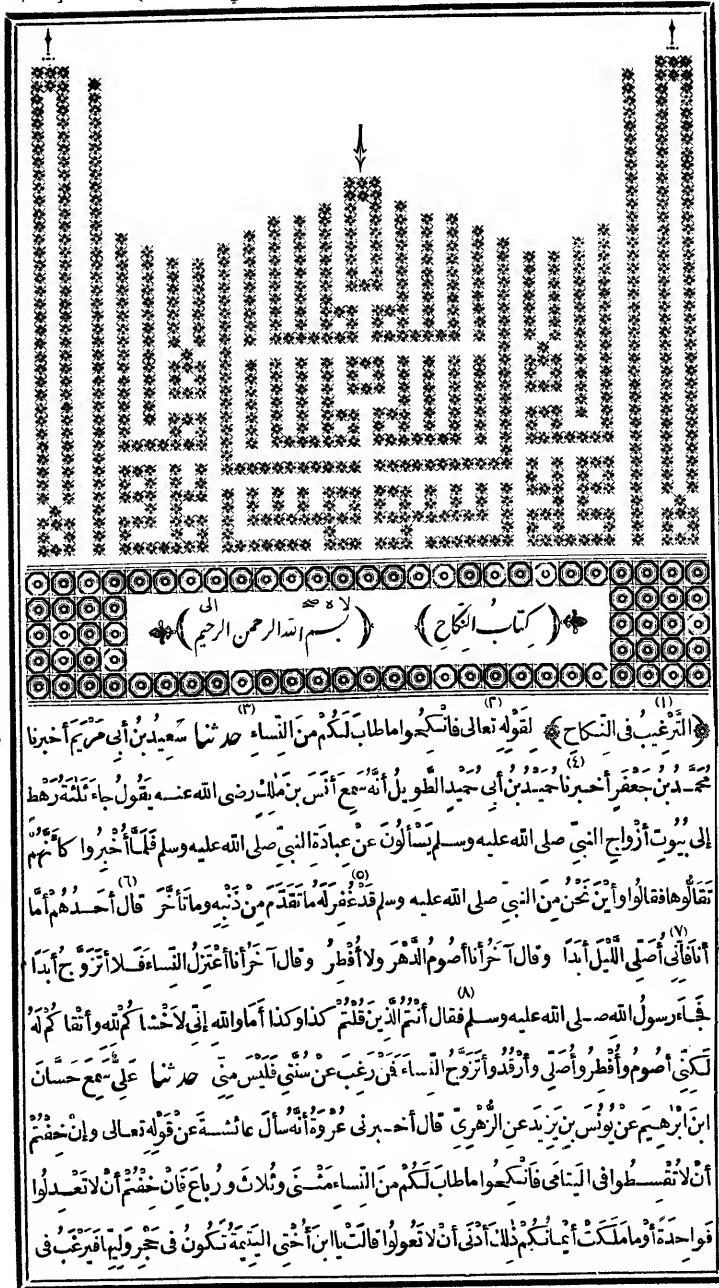 ﴿ كِتَابُ النِّكَاحِ ﴾ ﴿ بسم الله الرحمن الرحيم ﴾
﴿التَّرْغِيبُ فى النِّكَاحِ﴾ (١) لِقَوْلِهِ تَعالى (٢) فَانْكِحُوا ماطَابَ لَكُمْ مِنَ النِّساءِ (٣) حدثنا سَعِيدُ بنُ أبِى مَرْيَمَ أخبرنا
مُحَمَّدُ بنُ جَعْفَرٍ أخبرنا (٤) حُمَيْدُ بنُ أبى حُمَيْدٍ الطَّوِيلُ أنَّهُ سَمِعَ أنَسَ بنَ مٰلِكٍ رضى الله عنه يَقُولُ جاءَ ثَلٰثَةُ رَهْطٍ
إلى بُيُوتِ أزْوَاجِ النبيِّ صلى الله عليه وسلم يَسْألُونَ عَنْ عِبادَةِ النبيِّ صلى الله عليه وسلم فَلَمَّا أُخْبِرُوا كأنَّهُمْ
تَقَالُّوها فقالُوا وأيْنَ نَحْنُ مِنَ النبيِّ صلى الله عليه وسلم (٥) قَدْ غُفِرَ لَهُ ما تَقَدَّمَ مِنْ ذَنْبِهِ وما تَأخَّرَ قال أحَدُهُمْ (٦) أمَّا
أنا فَإنِّى (٧) أُصَلِّى اللَّيْلَ أبَدًا وقال آخَرُ أنا أصُومُ الدَّهْرَ ولا أُفْطِرُ وقال آخَرُ أنا أعْتَزِلُ النِّساءَ فَلا أتَزَوَّجُ أبَدًا
فَجاءَ رسولُ الله صلى الله عليه وسلم (٨) فقال أنْتُمُ الَّذِينَ قُلْتُمْ كذا وكذا أمَا واللهِ إنِّى لأَخْشاكُمْ لِلّهِ وأتْقاكُمْ لَهُ
لٰكِنِّى أصُومُ وأُفْطِرُ وأُصَلِّى وأرْقُدُ وأتَزَوَّجُ النِّساءَ فَمَنْ رَغِبَ عَنْ سُنَّتِى فَلَيْسَ مِنِّى حدثنا عَلِىٌّ سَمِعَ حَسَّانَ
ابنَ ابْرٰهِيمَ عَنْ يُونُسَ بنِ يَزِيدَ عَنِ الزُّهْرِىِّ قال أخبرنى عُرْوَةُ أنَّهُ سَألَ عائشةَ عَنْ قَوْلِهِ تعالى وإنْ خِفْتُمْ
أنْ لا تُقْسِطُوا فى اليَتامَى فَانْكِحُوا ماطَابَ لَكُمْ مِنَ النِّساءِ مَثْنَى وثُلاثَ ورُباعَ فَإنْ خِفْتُمْ أنْ لا تَعْدِلُوا
فَوَاحِدَةً أوْ ما مَلَكَتْ أيْمانُكُمْ ذٰلِكَ أدْنَى أنْ لا تَعُولُوا قالَتْ يا ابنَ أُخْتِى اليَتِيمَةُ تَكُونُ فى حَجْرِ وَلِيِّها فَيَرْغَبُ فى